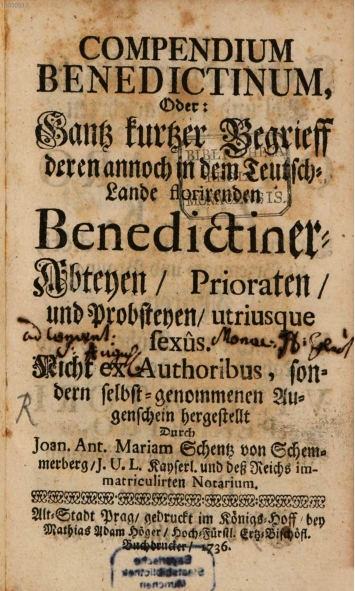 COMPENDIUM
BENEDICTINUM,
Oder:
Gantz kurtzer Begrieff
deren annoch in dem Teutsch-
Lande florirenden
Benedictiner-
Abteyen / Prioraten /
und Probsteyen / utriusque
sexûs.
Nicht ex Authoribus, son-
dern selbst-genommenen Au-
genschein hergestellt
Durch
Joan. Ant. Mariam Schentz von Schem-
merberg / J. U. L. Kayserl. und deß Reichs im-
matriculirten Notarium.
Alt-Stadt Prag / gedruckt im Königs-Hoff / bey
Mathias Adam Höger / Hoch-Fürstl. Ertz-Bischöfl.
Buchdrucker / 1736.
Bayerische
Staatsbibliothek
München